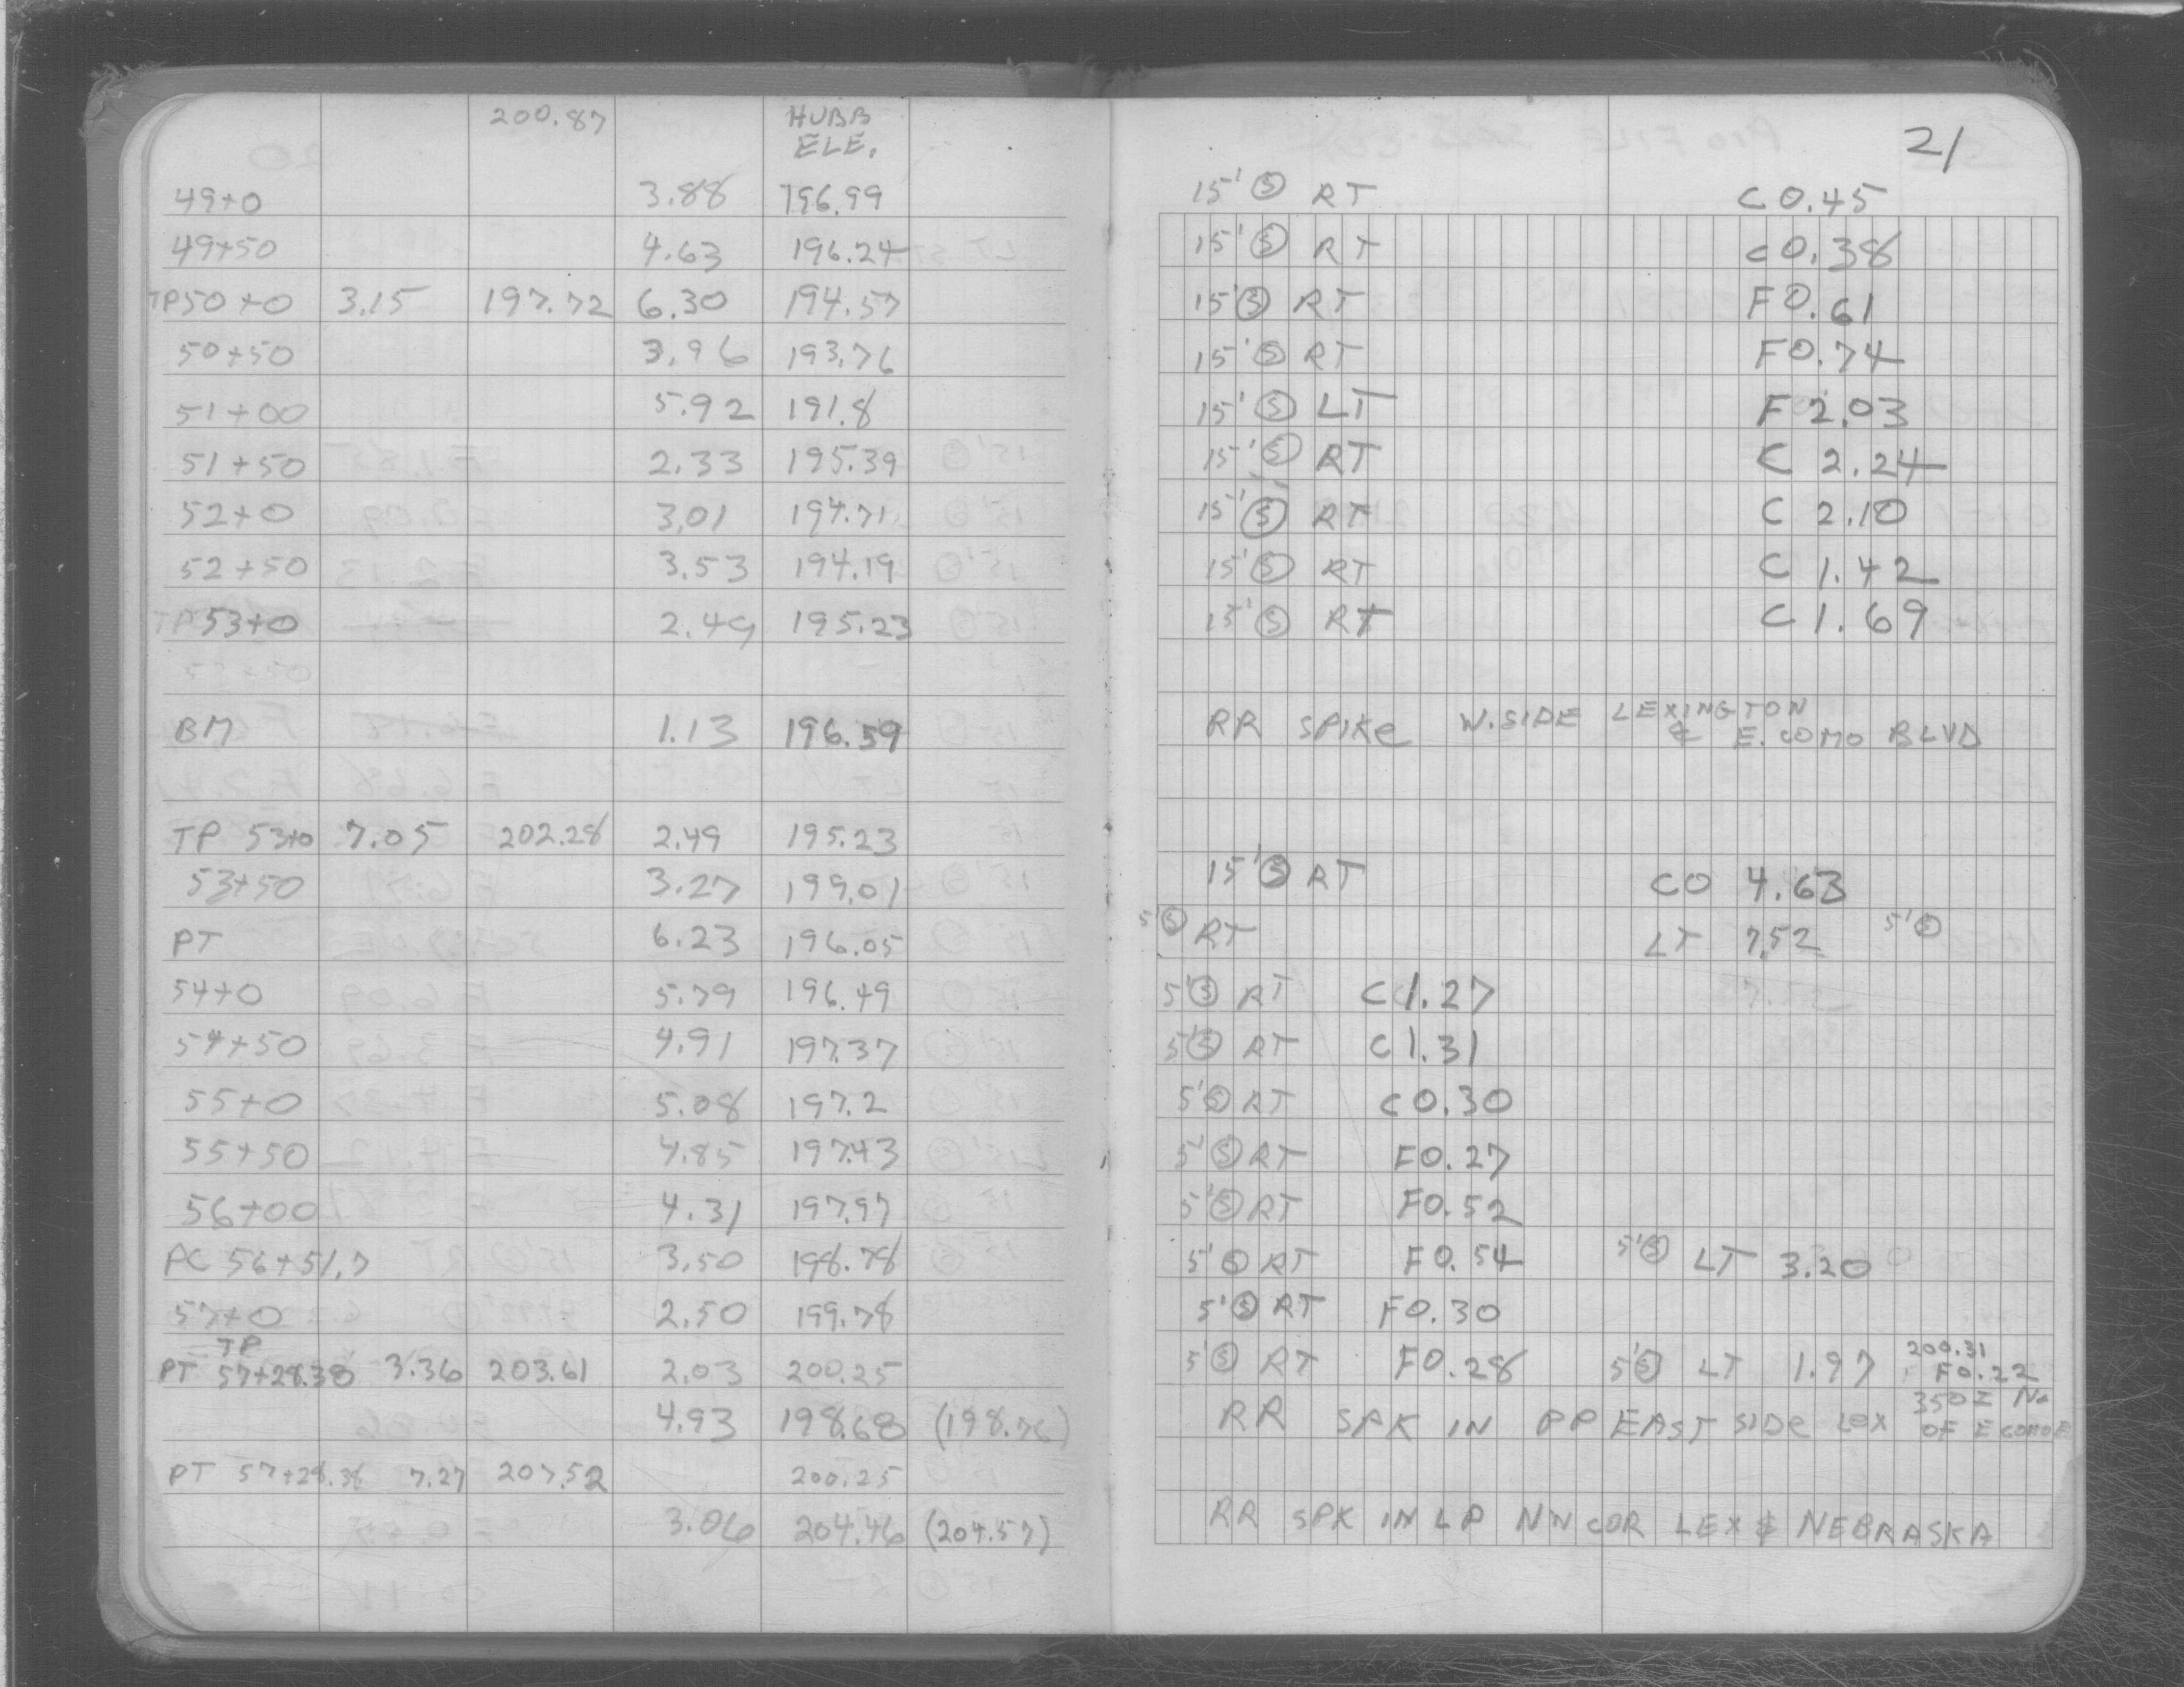 200.87 HUBB
ELE.
21
49+0 3.88 196.99 15' Ⓢ RT C 0.45
49+50 4.63 196.24 15' Ⓢ RT C 0.38
TP 50+0 3.15 197.72 6.30 194.57 15' Ⓢ RT F 0.61
50+50 3.96 193.76 15' Ⓢ RT F 0.74
51+00 5.92 191.8 15' Ⓢ LT F 2.03
51+50 2.33 195.39 15' Ⓢ RT C 2.24
52+0 3.01 194.71 15' Ⓢ RT C 2.10
52+50 3.53 194.19 15' Ⓢ RT C 1.42
TP 53+0 2.49 195.23 15' Ⓢ RT C 1.69
BM 1.13 196.59 RR SPIKE W. SIDE LEXINGTON
& E. COMO BLVD
TP 53+0 7.05 202.28 2.49 195.23
53+50 3.27 199.01 15' Ⓢ RT CO 4.63
PT 6.23 196.05 5' Ⓢ RT LT 7.52 5' Ⓢ
54+0 5.79 196.49 5' Ⓢ RT C 1.27
54+50 4.91 197.37 5' Ⓢ RT C 1.31
55+0 5.08 197.2 5' Ⓢ RT C 0.30
55+50 4.85 197.43 5' Ⓢ RT F 0.27
56+00 4.31 197.97 5' Ⓢ RT F 0.52
PC 56+51.7 3.50 198.78 5' Ⓢ RT F 0.54 5' Ⓢ LT 3.20
57+0 2.50 199.78 5' Ⓢ RT F 0.30
TP
PT 57+28.38 3.36 203.61 2.03 200.25 5' Ⓢ RT F 0.28 5' Ⓢ LT 1.97 200.31
F 0.22
4.93 198.68 (198.76) RR SPK IN PP EAST SIDE LEX 350± No
OF E COMO
PT 57+28.38 7.27 207.52 200.25
3.06 204.46 (204.57) RR SPK IN LP NW COR LEX & NEBRASKA